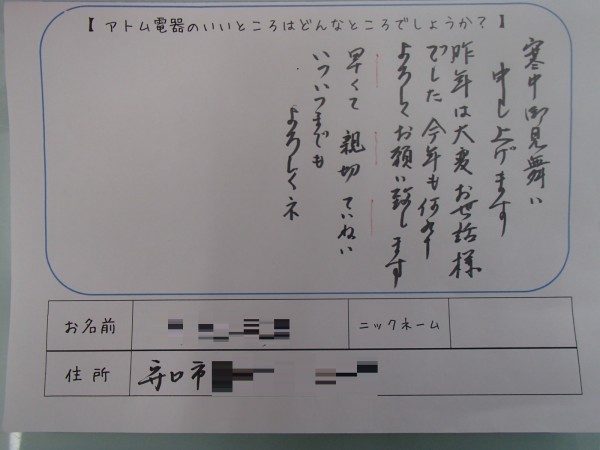 【 アトム電器のいいところはどんなところでしょうか？ 】
寒中御見舞い
申し上げます
昨年は大変お世話様
でした 今年も何卆
よろしくお願い致します
早くて 親切 ていねい
いついつまでも
よろしくネ
お名前
ニックネーム
住所
守口市